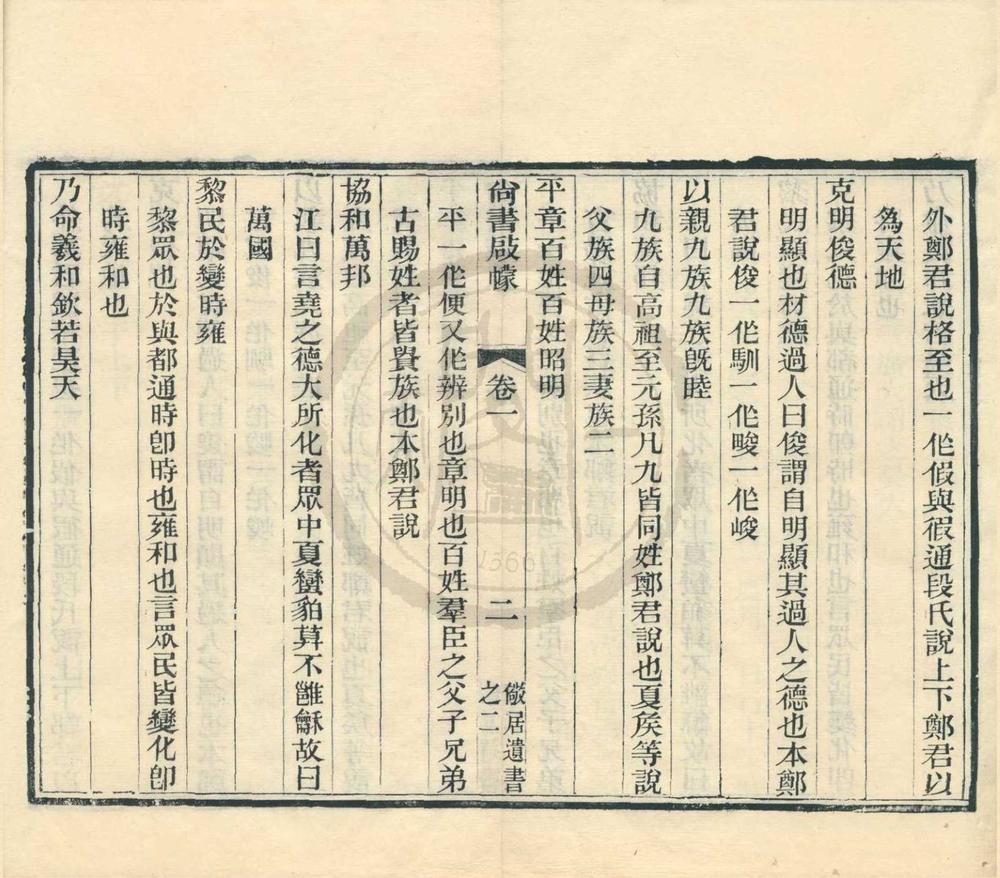 外鄭君說格至也一作假與徦通段氏說上下鄭君以
爲天地
克明俊德
明顯也材德過人曰俊謂自明顯其過人之德也本鄭
君說俊一作馴一作畯一作峻
以親九族九族旣睦
九族自高祖至元孫凡九皆同姓鄭君說也夏矦等說
父族四母族三妻族二
平章百姓百姓昭明
尙書啟幪 卷一 二 儆居遺書之二
平一作便又作辨別也章明也百姓羣臣之父子兄弟
古賜姓者皆貴族也本鄭君說
協和萬邦
江曰言堯之德大所化者眾中夏蠻貊莫不雝龢故曰
萬國
黎民於變時雍
黎眾也於與都通時卽時也雍和也言眾民皆變化卽
時雍和也
乃命羲和欽若昊天
1566